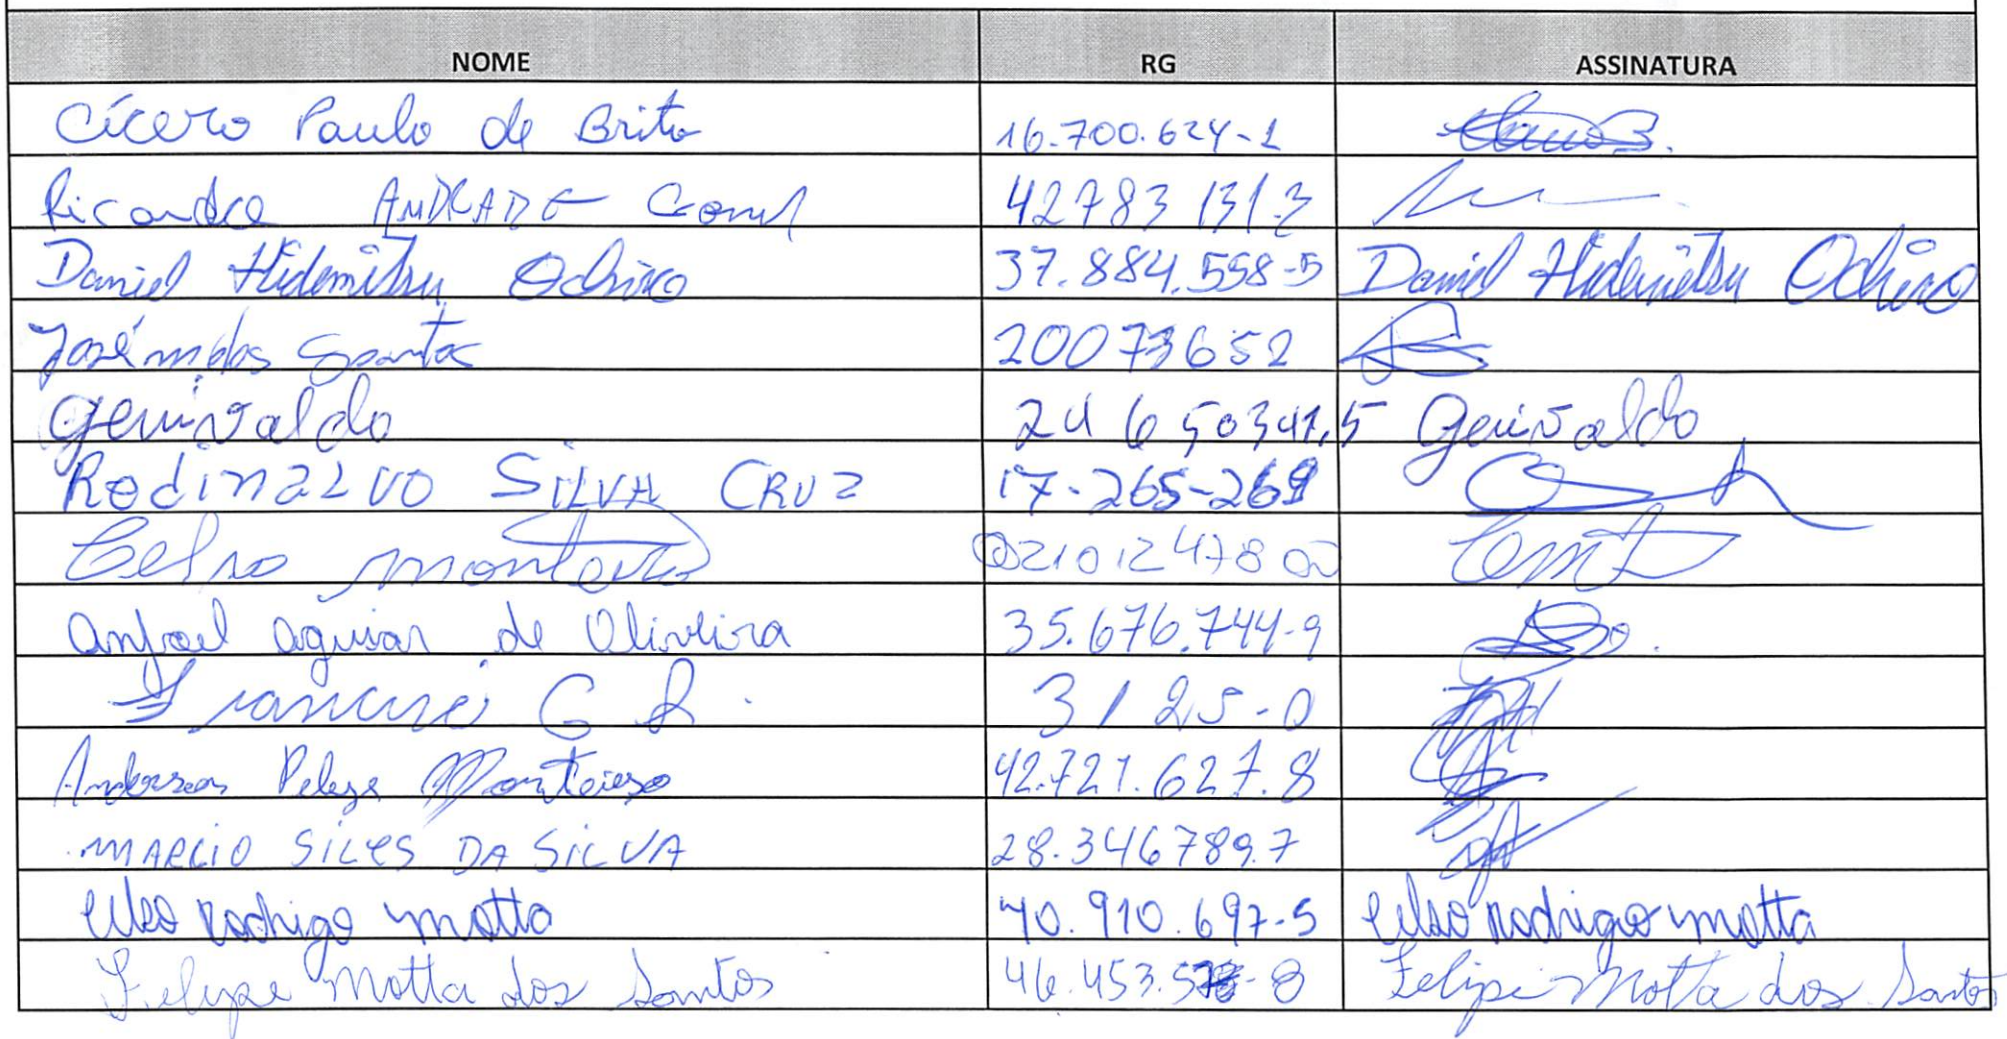 NOME RG ASSINATURA
Cícero Paulo de Brito 16.700.624-1
Ricardo ANDRADE 42783131-3
Daniel Hidemitsu Ochiro 37.884.558-5 Daniel Hidemitsu Ochiro
José m dos Santos 20073652
Genivaldo 24650341,5 Genivaldo
Rodinalvo SILVA CRUZ 17-265-269
Celso monteiro 021012478
aguiar de Oliveira 35.676.744-9
3125-0
Anderson Monteiro 42.721.627.8
MARCIO DA SILVA 28.346789.7
celso rodrigo motta 40.910.697-5 celso rodrigo motta
Felipe Motta dos Santos 46.453. Felipe Motta dos Santos